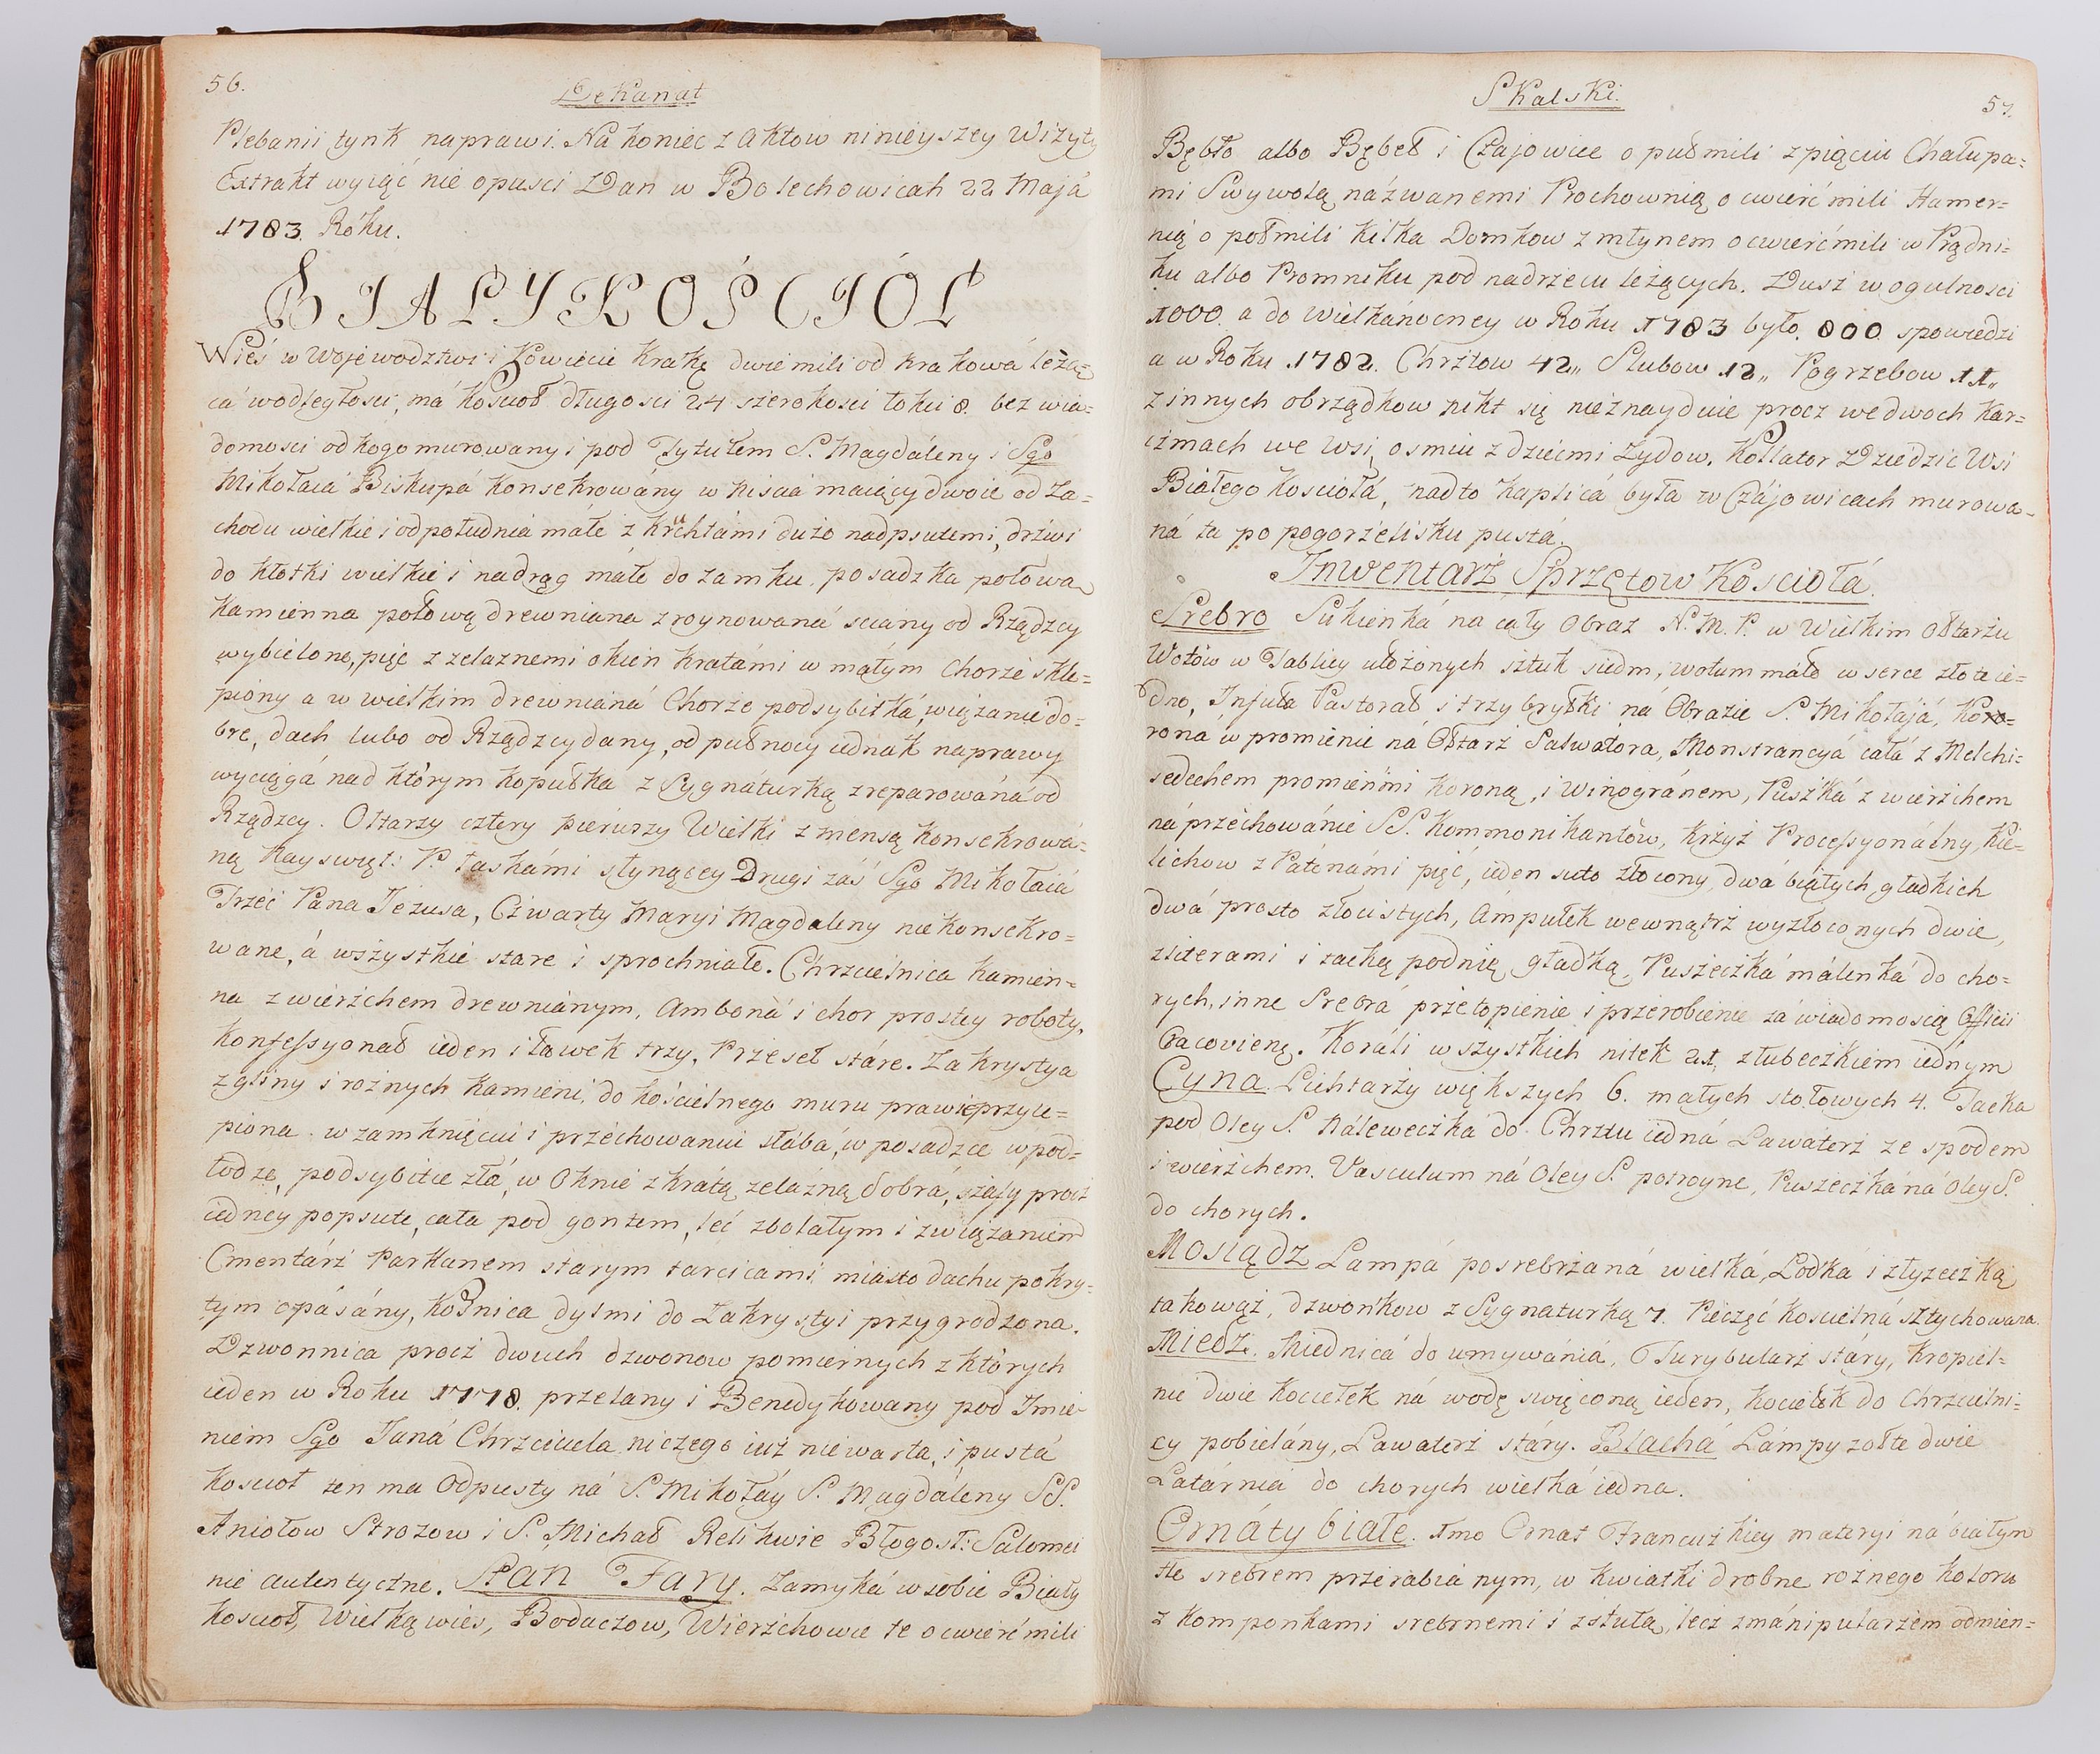 56.
Dekanat
Plebanii tynk naprawi. Na koniec z Aktow ninieyszey Wizyty
Extrakt wyiąć nie opusci Dan w Bolechowicah 22 Maja
1783. Róku.
BIAŁY KOŚCIÓŁ
Wieś w Wojewodztwi i Powiecie Krakę dwie mili od Krakowa leżą=
cá w odległosci, má Kościoł długosci 24 szerokosci łokci 8. bez wia=
domosci od kogo murowany i pod Tytułem S. Magdáleny i Sgo
Mikołaia Biskupá Konsekrowány w niscia maiący dwoie od Za=
chodu wielkie i od południa małe z kruchtámi dużo nadpsutemi, drzwi
do kłotki wielkie i nadrąg małe do zamku, posadzka połowa
kamienna połową drewniana zroynowaná sciany od Rządzcy
wybielone, pięc z zelaznemi okien kratámi w małym Chorze skle=
piony a w wielkim drewnianá Chorze podsybitká, wiązanie do=
bre, dach lubo od Rządzcy dany, od pułnocy iednak naprawy
wyciągá nad którym kopułka z Sygnáturką zreparowáná od
Rządzcy. Ołtarzy cztery pierwszy Wielki z mensą konsekrowá=
ną Nayswięt: P. łaskámi słynącey Drugi záś Sgo Mikołaiá
Trzeci Pána Jezusa, Czwarty Maryi Magdaleny niekonsekro=
wane, á wszystkie stare i sprochniałe. Chrzcielnica kamien=
na z wierzchem drewniánym, Amboná i chor prostey roboty,
Konfessyonał ieden i ławek trzy, Przeseł stáre. Zakrystya
z gliny i rożnych kamieni, do kościelnego muru prawie przyle=
piona. w zamknięciu i przechowaniu słába, w posadzce w pod=
łodze, podsybitie złá, w Oknie z krátą zelázną dobrá, szafy procz
iedney popsute, cała pod gontem, leć zbolałym i związaniem
Cmentárz Parkanem starym tarcicami miasto dachu pokry=
tym opásány, Kośnica dylmi do Zakrystyi przygrodzona.
Dzwonnica procz dwuch dzwonow pomiernych z których
ieden w Roku 1778. przelany i Benedykowany pod Imie
niem Sgo Janá Chrzciciela niczego iuż niewarta, i pustá
Koscioł ten ma Odpusty ná S. Mikołáy S. Magdáleny SS.
Aniołow Strozow i S. Michał Relikwie Błogosł: Salomei
nie autentyczne. Stan Fary. Zamyká w sobie Biały
koscioł, Wielką wies, Bodaczow, Wierzchowie te o cwierć mili
Skalski.
57.
Bębło albo Bębeł i Czajowice o pułmili z pięciu Chałupa=
mi Swywolą názwanemi Prochownią o cwierć mili Hamer=
nią o połmili kilka Domkow z młynem o cwierć mili w Prądni=
ku albo Promniku pod nadrzeciu leżących. Dusz w ogulnosci
1000. a do wielkánocney w Roku 1783 było. 800 spowiedzi
a w Roku 1782. Chrztow 42,, Slubow 12,, Pogrzebow 11,,
z innych obrządkow nikt się nieznayduie procz we dwoch Kar=
czmach we Wsi osmiu z dziećmi Zydow. Kollator Dziedzic Wsi
Białego Kościołá, nadto kaplicá była w Czájowicach murowa=
ná ta po pogorzelisku pustá.
Inwentarz Sprzętow Kościołá.
Srebro Sukienká na cały Obraz N. M. P. w Wielkim Ołtarzu
Wotów w Tablicy ułożonych sztuk siedm, wotum máło w serce złote ie=
dno, Infuła Pastorał i trzy bryłki ná Obrazie S. Mikołajá, Koro=
roná w promienie ná Ołtarz Salwatora, Monstrancyá całá z Melchi=
sedechem promieńmi koroną, i Winogránem, Puszká z wierzchem
ná przechowánie SS. Kommonikantów, krzyż Processyonálny, Kie=
lichow z Paténámi pięć, ieden suto złocony, dwá białych gładkich
dwá prosto złocistych, Ampułek wewnątrz wyzłoconych dwie,
z literami i tacką podnię gładką, Puszeczká málenká do cho=
rych, inne Srebrá przetopienie i przerobienie zá wiadomoscią Officii
Cracovieng. Koráli wszystkich nitek 21, złubeczkiem iednym
Cyna. Lichtarzy większych 6. małych stołowych 4. Tacka
pod Oley S. Náleweczká do Chrztu iedná Lawaterz ze spodem
i wierzchem. Vasculum ná Oley S. potroyne, Puszeczká ná Oley S.
do chorych.
Mosiądz Lampá posrebrzaná wielká, Lodka i złyzeczką
takowąż, dzwonkow z Sygnaturką 7. Pieczęć Koscielná sztychowana.
Miedz. Miednicá do umywánia, Turybularz stáry, Kropiel=
nie dwie Kociełek ná wodę swięconą ieden, kociełek do Chrzcielni=
cy pobielány, Lawaterz stáry. Blachá Lámpy zołte dwie
Latárniá do chorych wielká iedna.
Ornáty białe. 1mo Ornat Francuzkiey materyi ná białym
tle srebrem przerabianym, w kwiatki drobne rożnego koloru
z komponkami srebrnemi i zstułą, lecz zmánipularzem odmien=